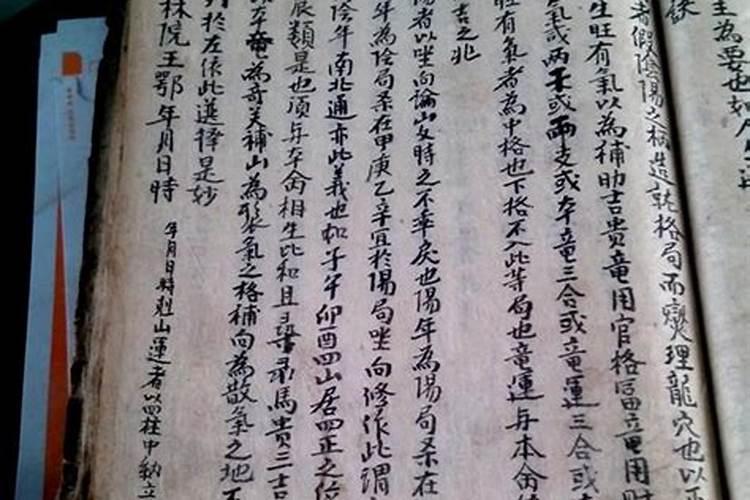 主為要也如人生
訣
者假陰陽之柄造乾格局而燮理龍穴也以
生旺有氣以為補助吉貴竜用官格冨竜用財
氣或兩干或兩支或本竜三合或竜運三合或
旺有氣者為中格也下格不入此等局也竜運与本命
吉之兆
陽者以坐向論山女時之不乖戾也陽年為陽局系在
年為陰局系在甲庚乙辛宜於陽局坐向修作此謂
陰年南北通亦此義也如子午卯酉四山居四正之位
辰類是也須与本命相生比和且尋彔馬貴三吉
本竜為竒关補山為聚氣之格補向為散氣之地
列於左依此選擇是妙
林院王鄂年月日時
年月日時剋山運者以四柱中納